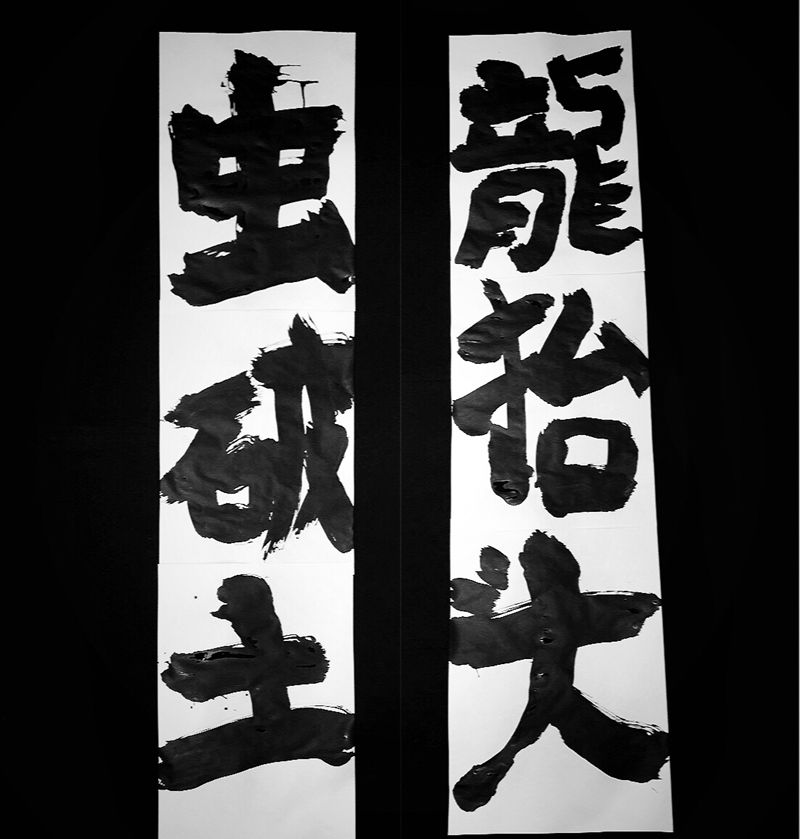 龍抬头
虫破土